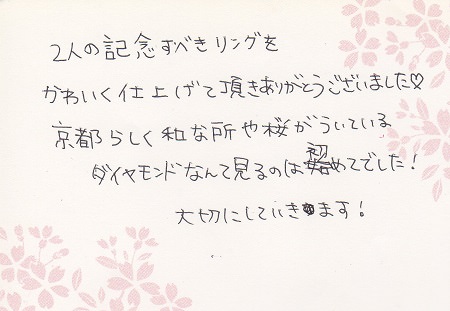 2人の記念すべきリングを
かわいく仕上げて頂きありがとうございました♡
京都らしく和な所や桜がういている
ダイヤモンドなんて見るのは初めてでした!
大切にしていきます!